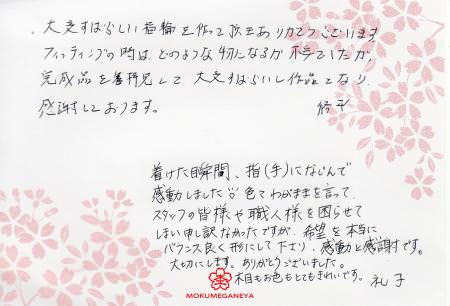 大変すばらしい指輪を作って頂きありがとうございます
フィッティングの時は、どのような物になるか不安でしたが、
完成品を拝見して、大変すばらしい作品となり、
感謝しております。
修平
着けた瞬間、指(手)になじんで
感動しました♡♡ 色でわがままを言って、
スタッフの皆様や職人様を困らせて
しまい申し訳なかったですが、希望を本当に
バランス良く形にして下さり、感動と感謝です。
大切にします。ありがとうございました。
木目もお色もとてもきれいです。礼子
MOKUMEGANEYA